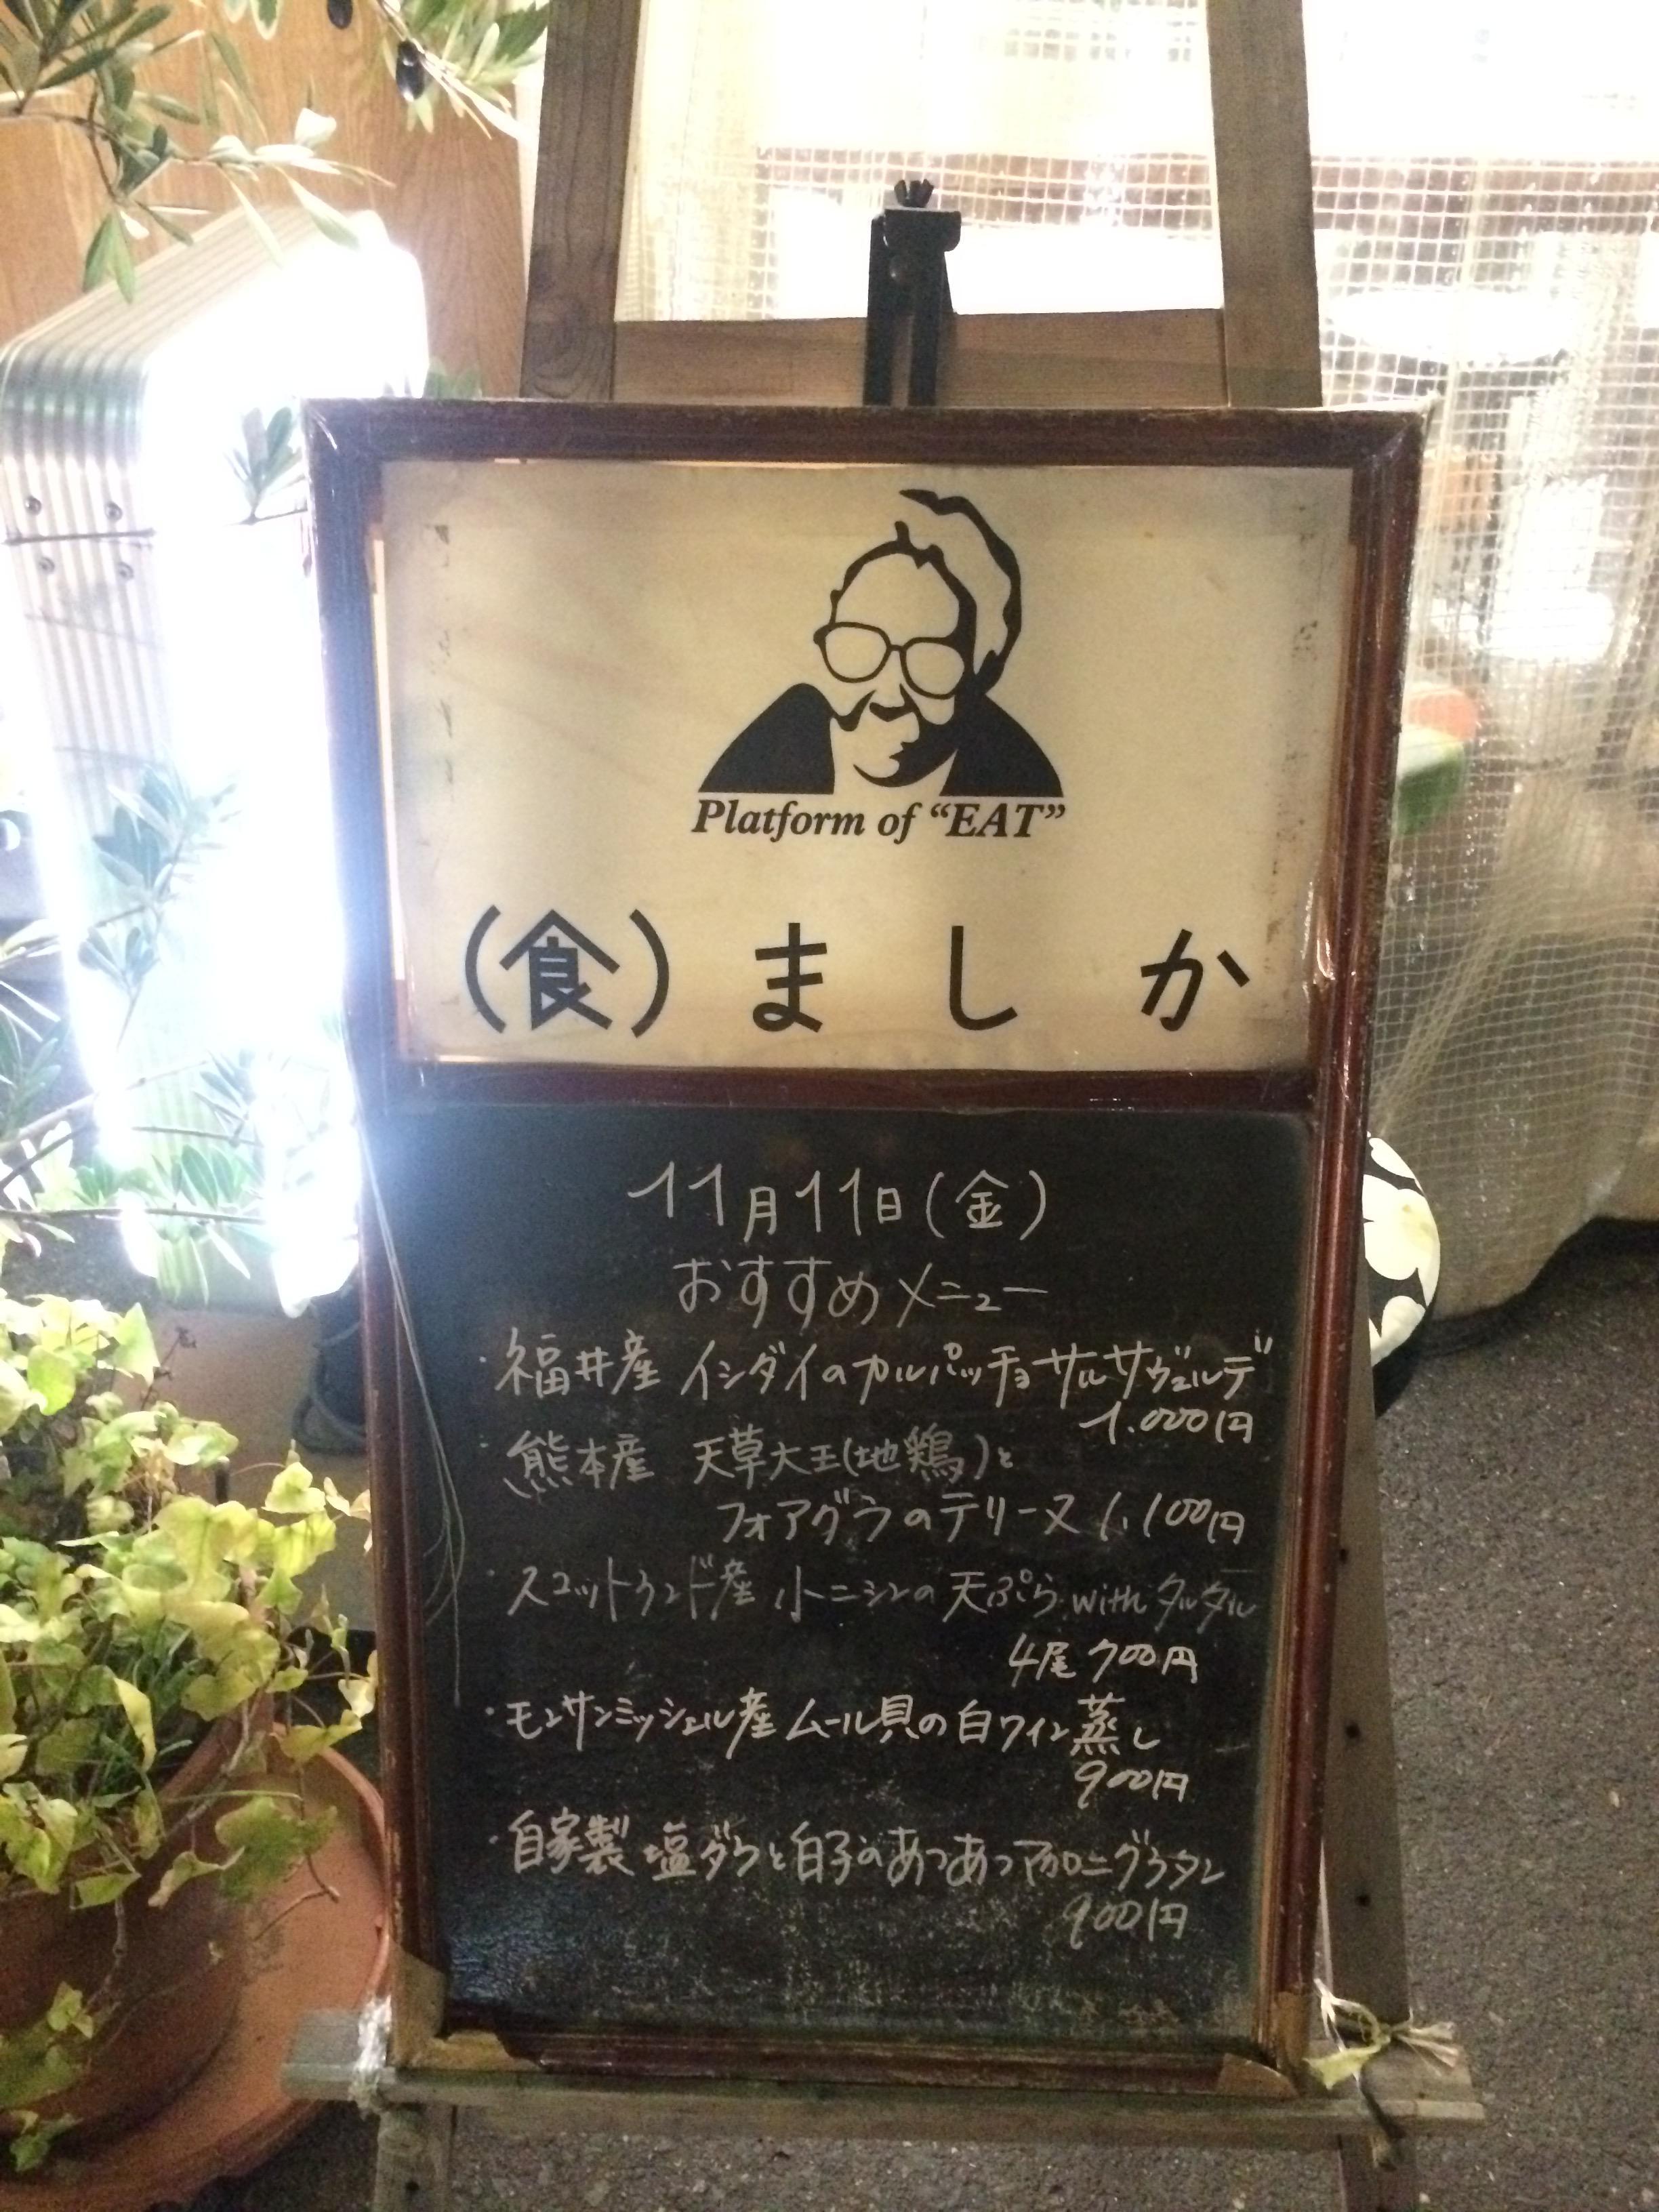 Platform of “EAT”
(食)ましか
11月11日(金)
おすすめメニュー
・福井産 イシダイのカルパッチョ サルサヴェルデ
1.000円
・熊本産 天草大王(地鶏)と
フォアグラのテリーヌ 1.100円
・スコットランド産 小ニシンの天ぷら with タルタル
4尾 700円
・モンサンミッシェル産 ムール貝の白ワイン蒸し
900円
・自家製 塩ダラと白子のあつあつマカロニグラタン
900円